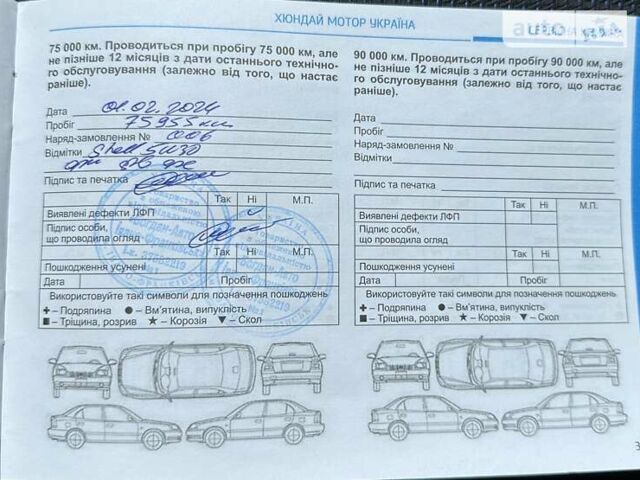 ХЮНДАЙ МОТОР УКРАЇНА
75 000 км. Проводиться при пробігу 75 000 км, але
не пізніше 12 місяців з дати останнього технічно-
го обслуговування (залежно від того, що настає
раніше).
Дата 01.02.2024
Пробіг 75955 км
Наряд-замовлення № 006
Відмітки Shell 5W30
Підпис та печатка
Так Ні М.П.
Виявлені дефекти ЛФП
Підпис особи,
що проводила огляд
Так Ні М.П.
Пошкодження усунені
Дата Пробіг
Використовуйте такі символи для позначення пошкоджень
+ – Подряпина ● – Вм'ятина, випуклість
■ – Тріщина, розрив ★ – Корозія ▼ – Скол
90 000 км. Проводиться при пробігу 90 000 км, але
не пізніше 12 місяців з дати останнього технічно-
го обслуговування (залежно від того, що настає
раніше).
Дата
Пробіг
Наряд-замовлення №
Відмітки
Підпис та печатка
Так Ні М.П.
Виявлені дефекти ЛФП
Підпис особи,
що проводила огляд
Так Ні М.П.
Пошкодження усунені
Дата Пробіг
Використовуйте такі символи для позначення пошкоджень
+ – Подряпина ● – Вм'ятина, випуклість
■ – Тріщина, розрив ★ – Корозія ▼ – Скол
3